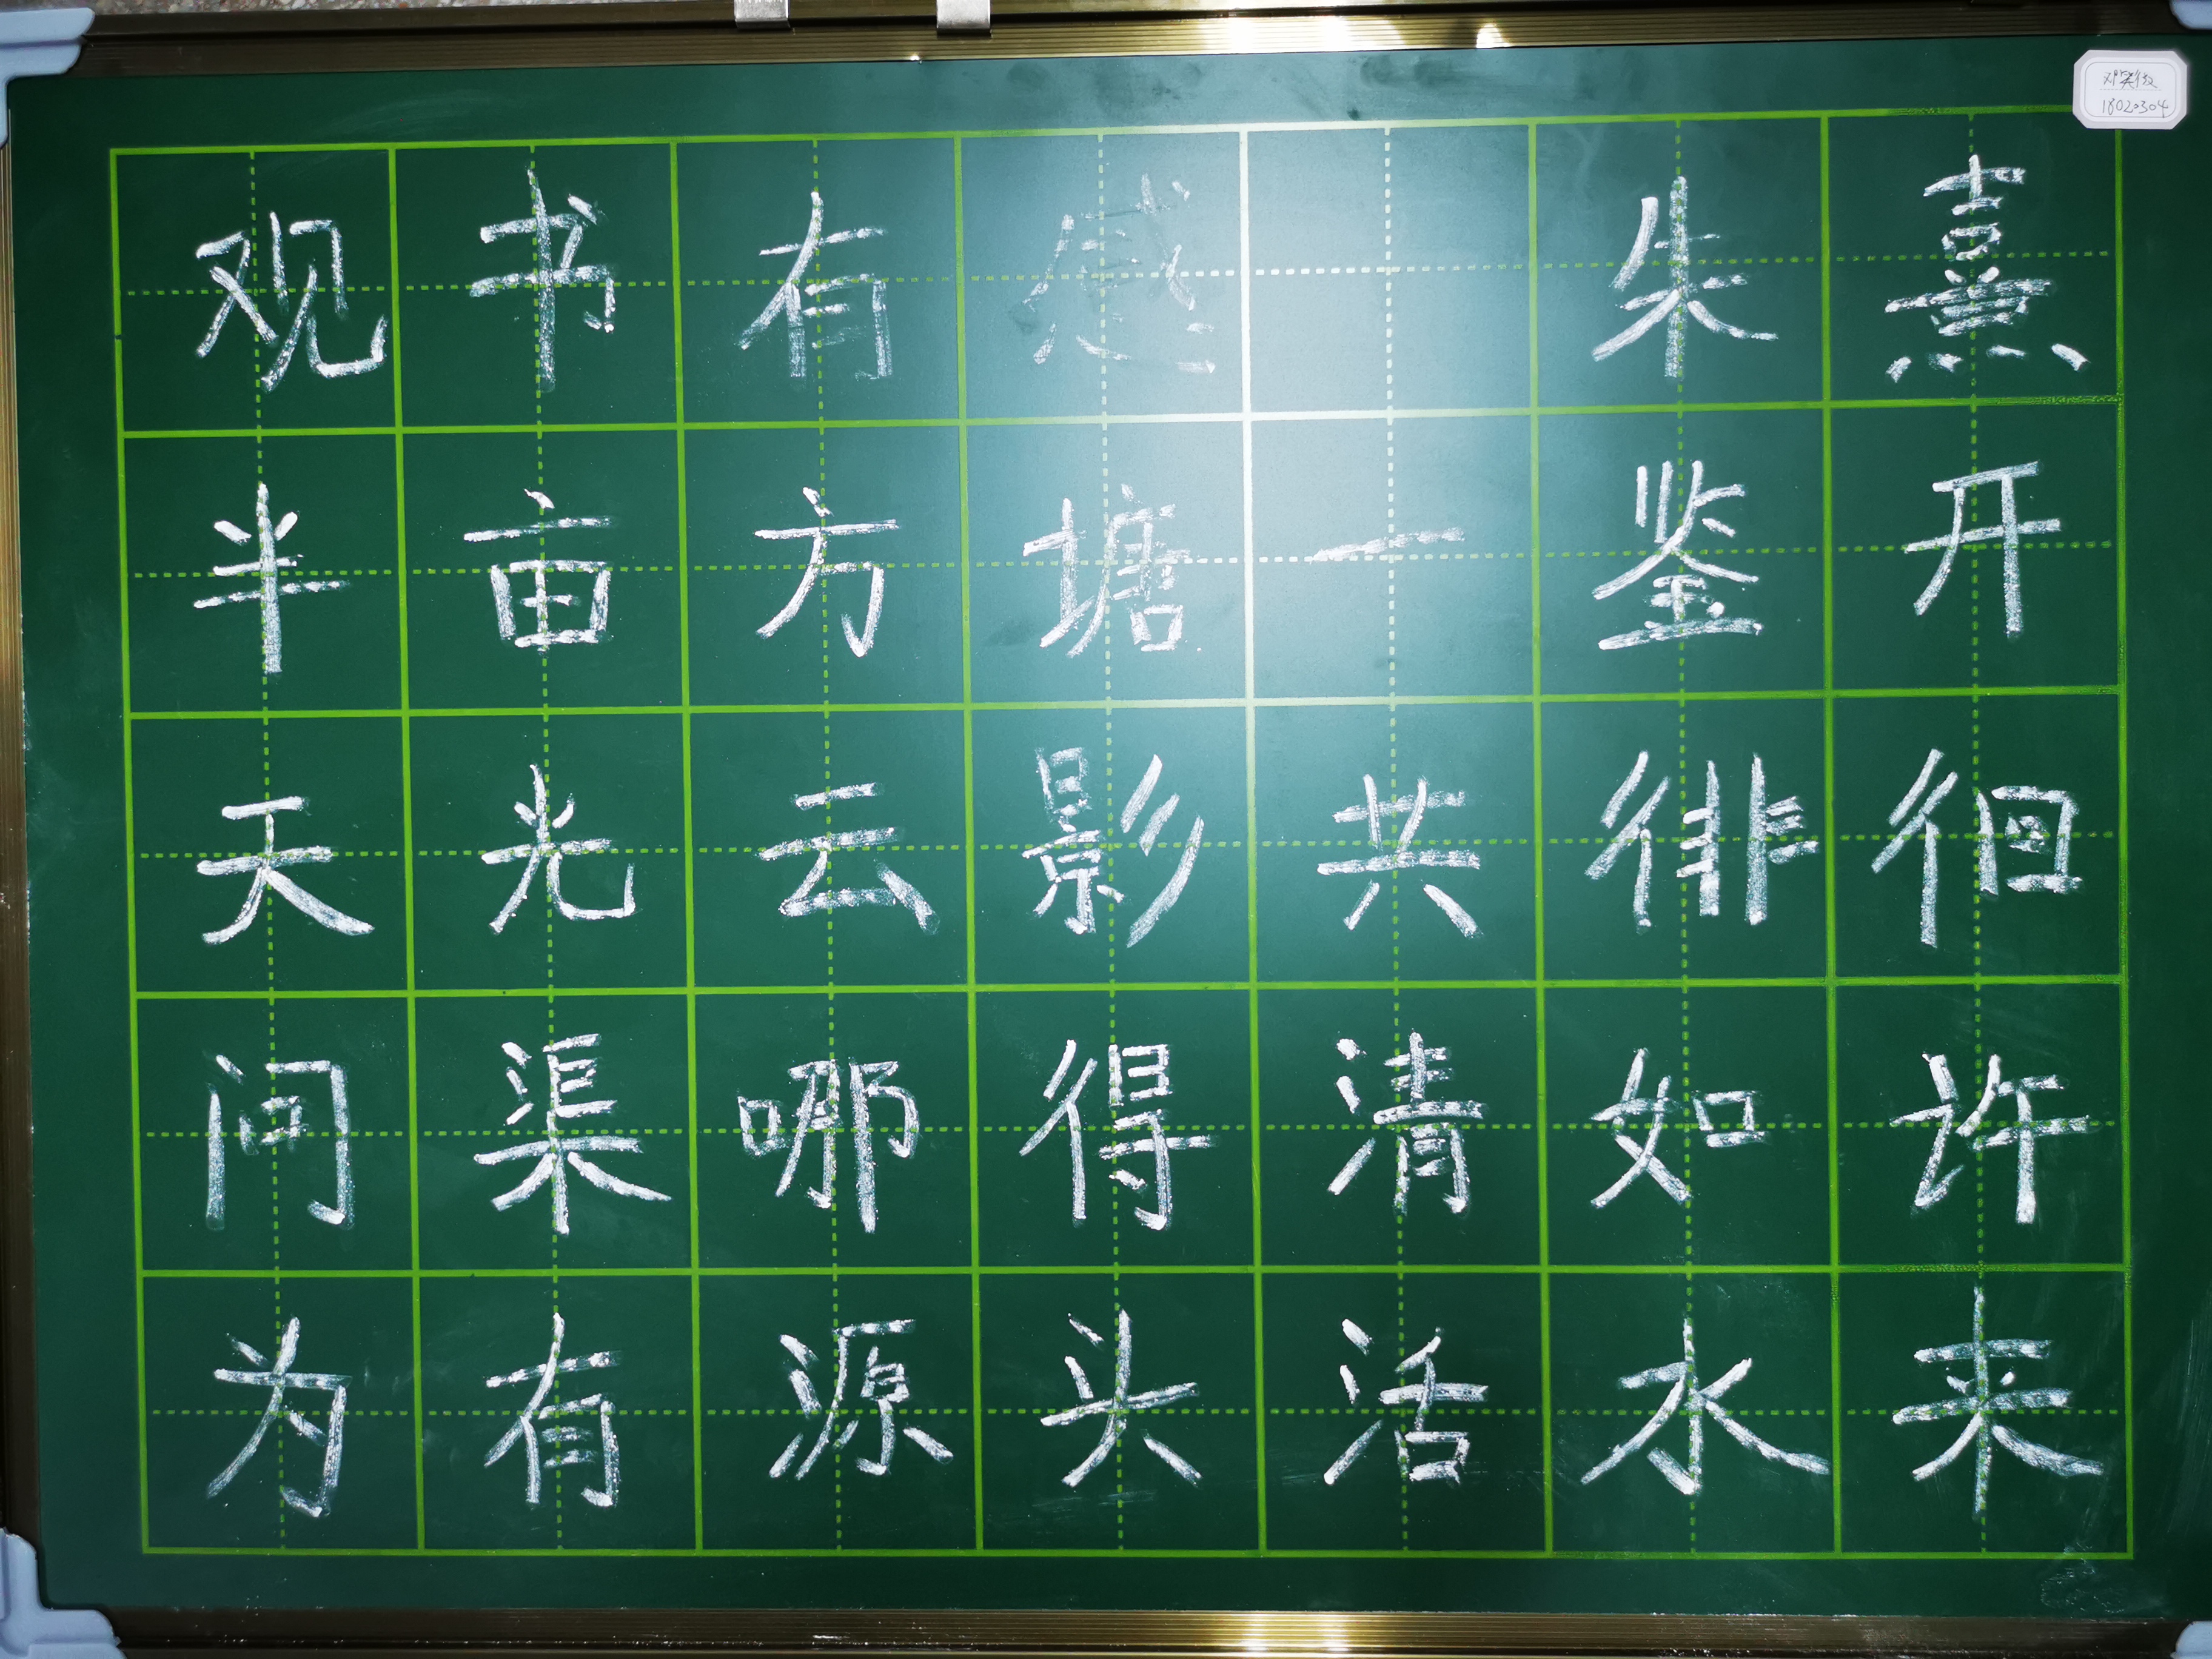 观书有感 朱熹
半亩方塘一鉴开
天光云影共徘徊
问渠哪得清如许
为有源头活水来
18020304